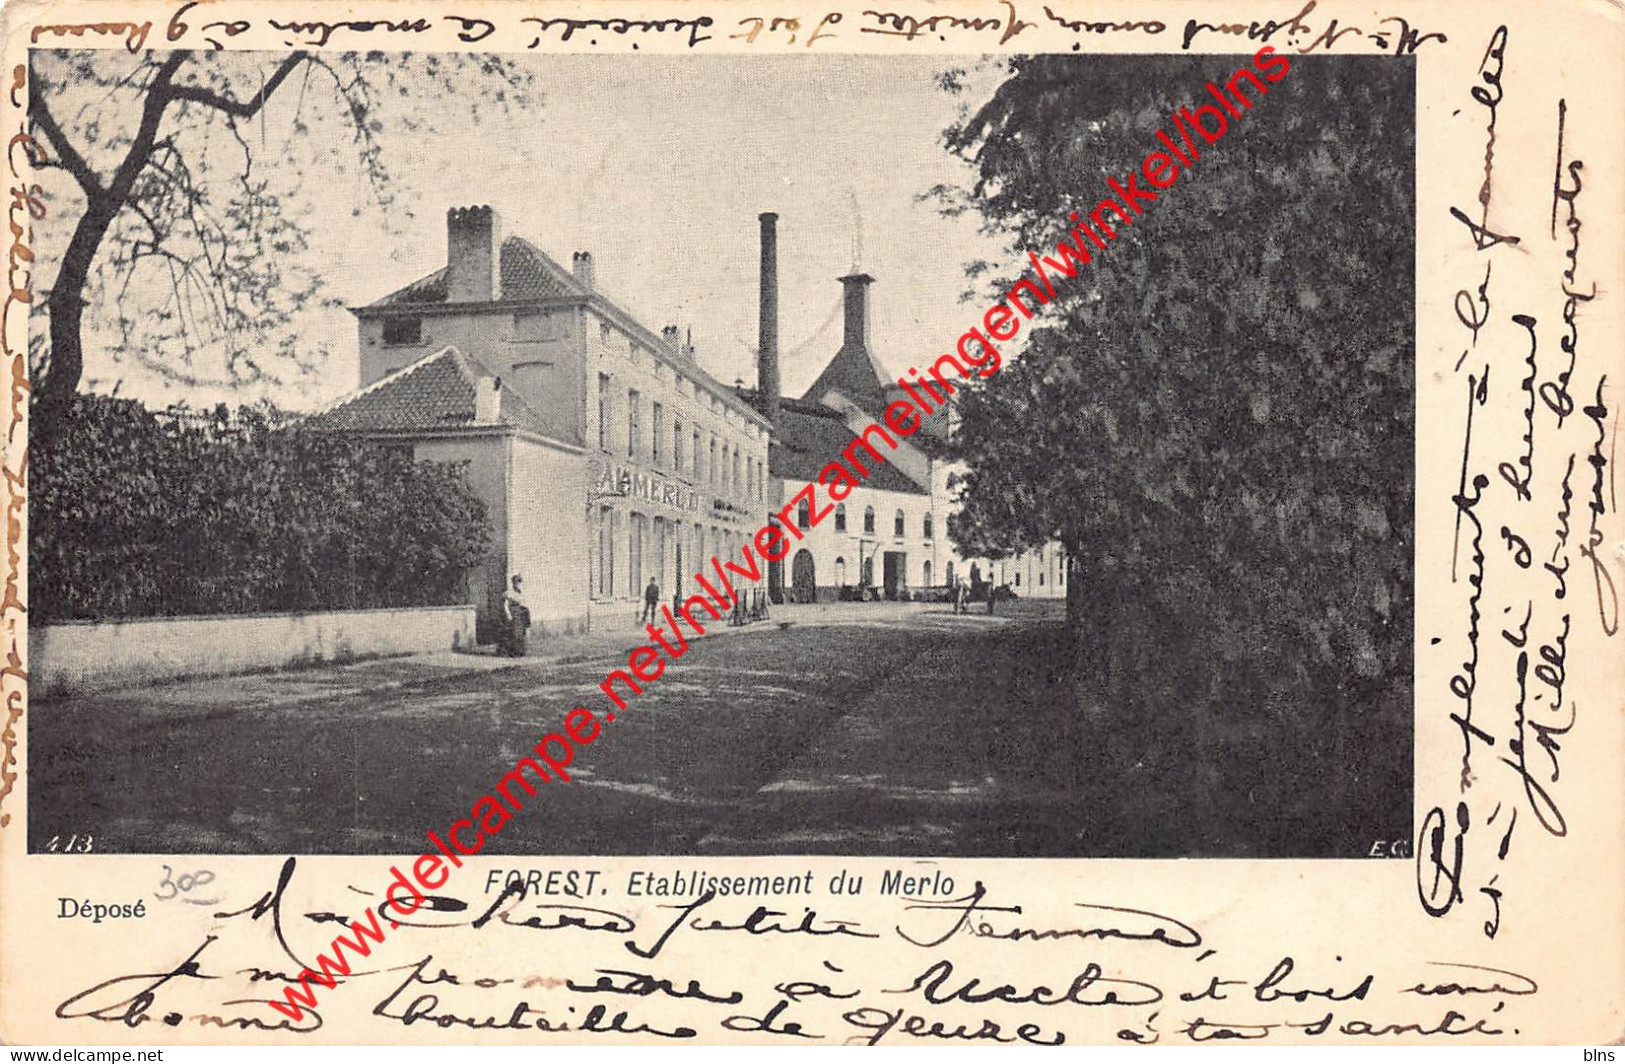 Mr Nijssens ancien Ministre s'est suicidé ce matin à 9 heures
à l'hôtel du grand
AU MERLO
413
E.G.
FOREST. Etablissement du Merlo
Déposé
300
Ma Chère Petite Femme,
je me promène à Uccle et bois une
bonne bouteille de Geuze à ta santé.
Compliments à la famille
et à 3 heures
Mille et un becquots
www.delcampe.net/nl/verzamelingen/winkel/blns
www.delcampe.net
blns